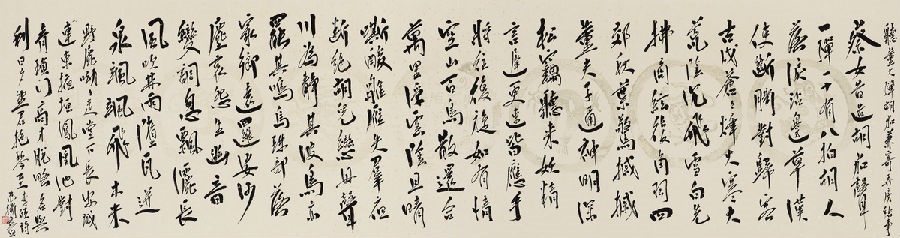 蔡女昔造胡笳聲
一彈一十有八拍胡人
落淚沾邊草漢
使斷腸對歸客
古戍蒼々烽火寒大
荒陰沉飛雪白先
拂商絃後角羽四
郊秋葉驚摵摵
董夫子通神明深
松竊聽來妖精
言遲更速皆應手
將往復旋如有情
空山百鳥散還合
萬里浮雲陰且晴
嘶酸雛雁失羣夜
斷絕胡兒戀母聲
川為靜其波鳥亦
罷其鳴烏珠部落
家鄉遠邏娑沙
塵哀怨生幽音
變調忽飄灑長
風吹林雨墮瓦迸
泉颯颯飛木末
野鹿呦呦走堂下長安城
連東掖垣鳳凰池對
青瑣門高才脫略名與
利日夕望君抱琴至